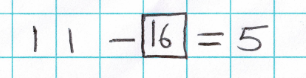 11 - 16 = 5